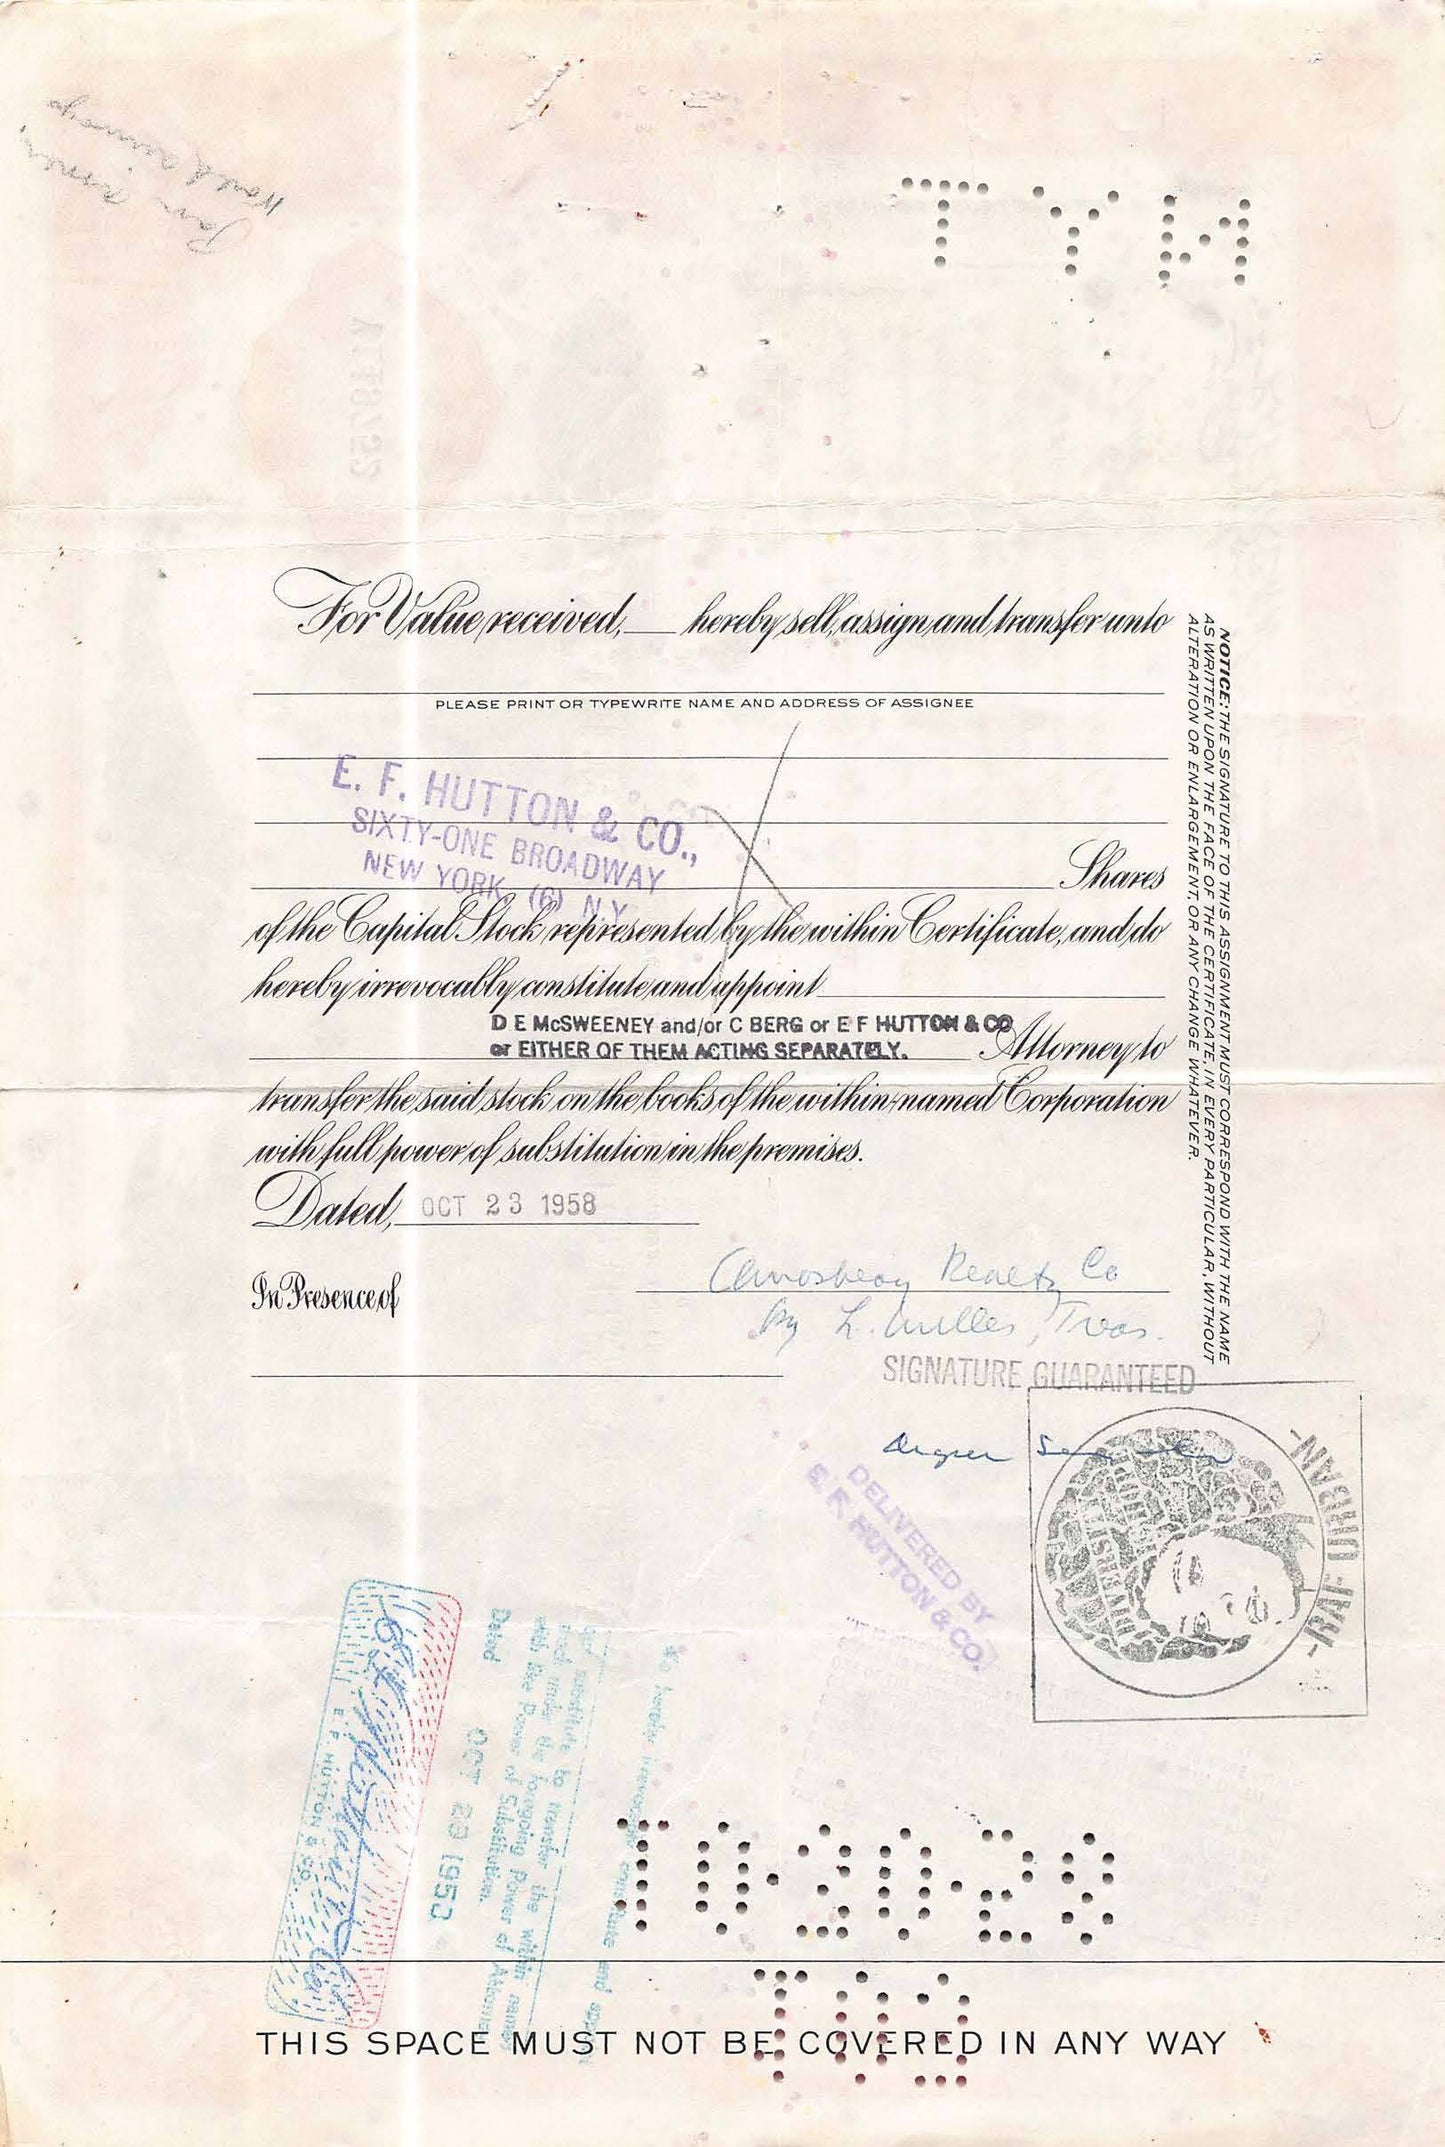 For Value received, ___ hereby sell, assign and transfer unto
PLEASE PRINT OR TYPEWRITE NAME AND ADDRESS OF ASSIGNEE
E. F. HUTTON & CO.,
SIXTY-ONE BROADWAY
NEW YORK (6) N.Y.
Shares
of the Capital Stock represented by the within Certificate, and do
hereby irrevocably constitute and appoint
D E McSWEENEY and/or C BERG or E F HUTTON & CO
or EITHER OF THEM ACTING SEPARATELY.
Attorney to
transfer the said stock on the books of the within-named Corporation
with full power of substitution in the premises.
Dated, OCT 23 1958
In Presence of
Realty Co
By L. Miller, Treas.
SIGNATURE GUARANTEED
NOTICE: THE SIGNATURE TO THIS ASSIGNMENT MUST CORRESPOND WITH THE NAME
AS WRITTEN UPON THE FACE OF THE CERTIFICATE, IN EVERY PARTICULAR, WITHOUT
ALTERATION OR ENLARGEMENT, OR ANY CHANGE WHATEVER.
DELIVERED BY
E. F. HUTTON & CO.
-RAF URBAN-
substitute to transfer the within named
under the foregoing Power of
and the Power of Substitution.
Dated
E. F. HUTTON & CO.
THIS SPACE MUST NOT BE COVERED IN ANY WAY